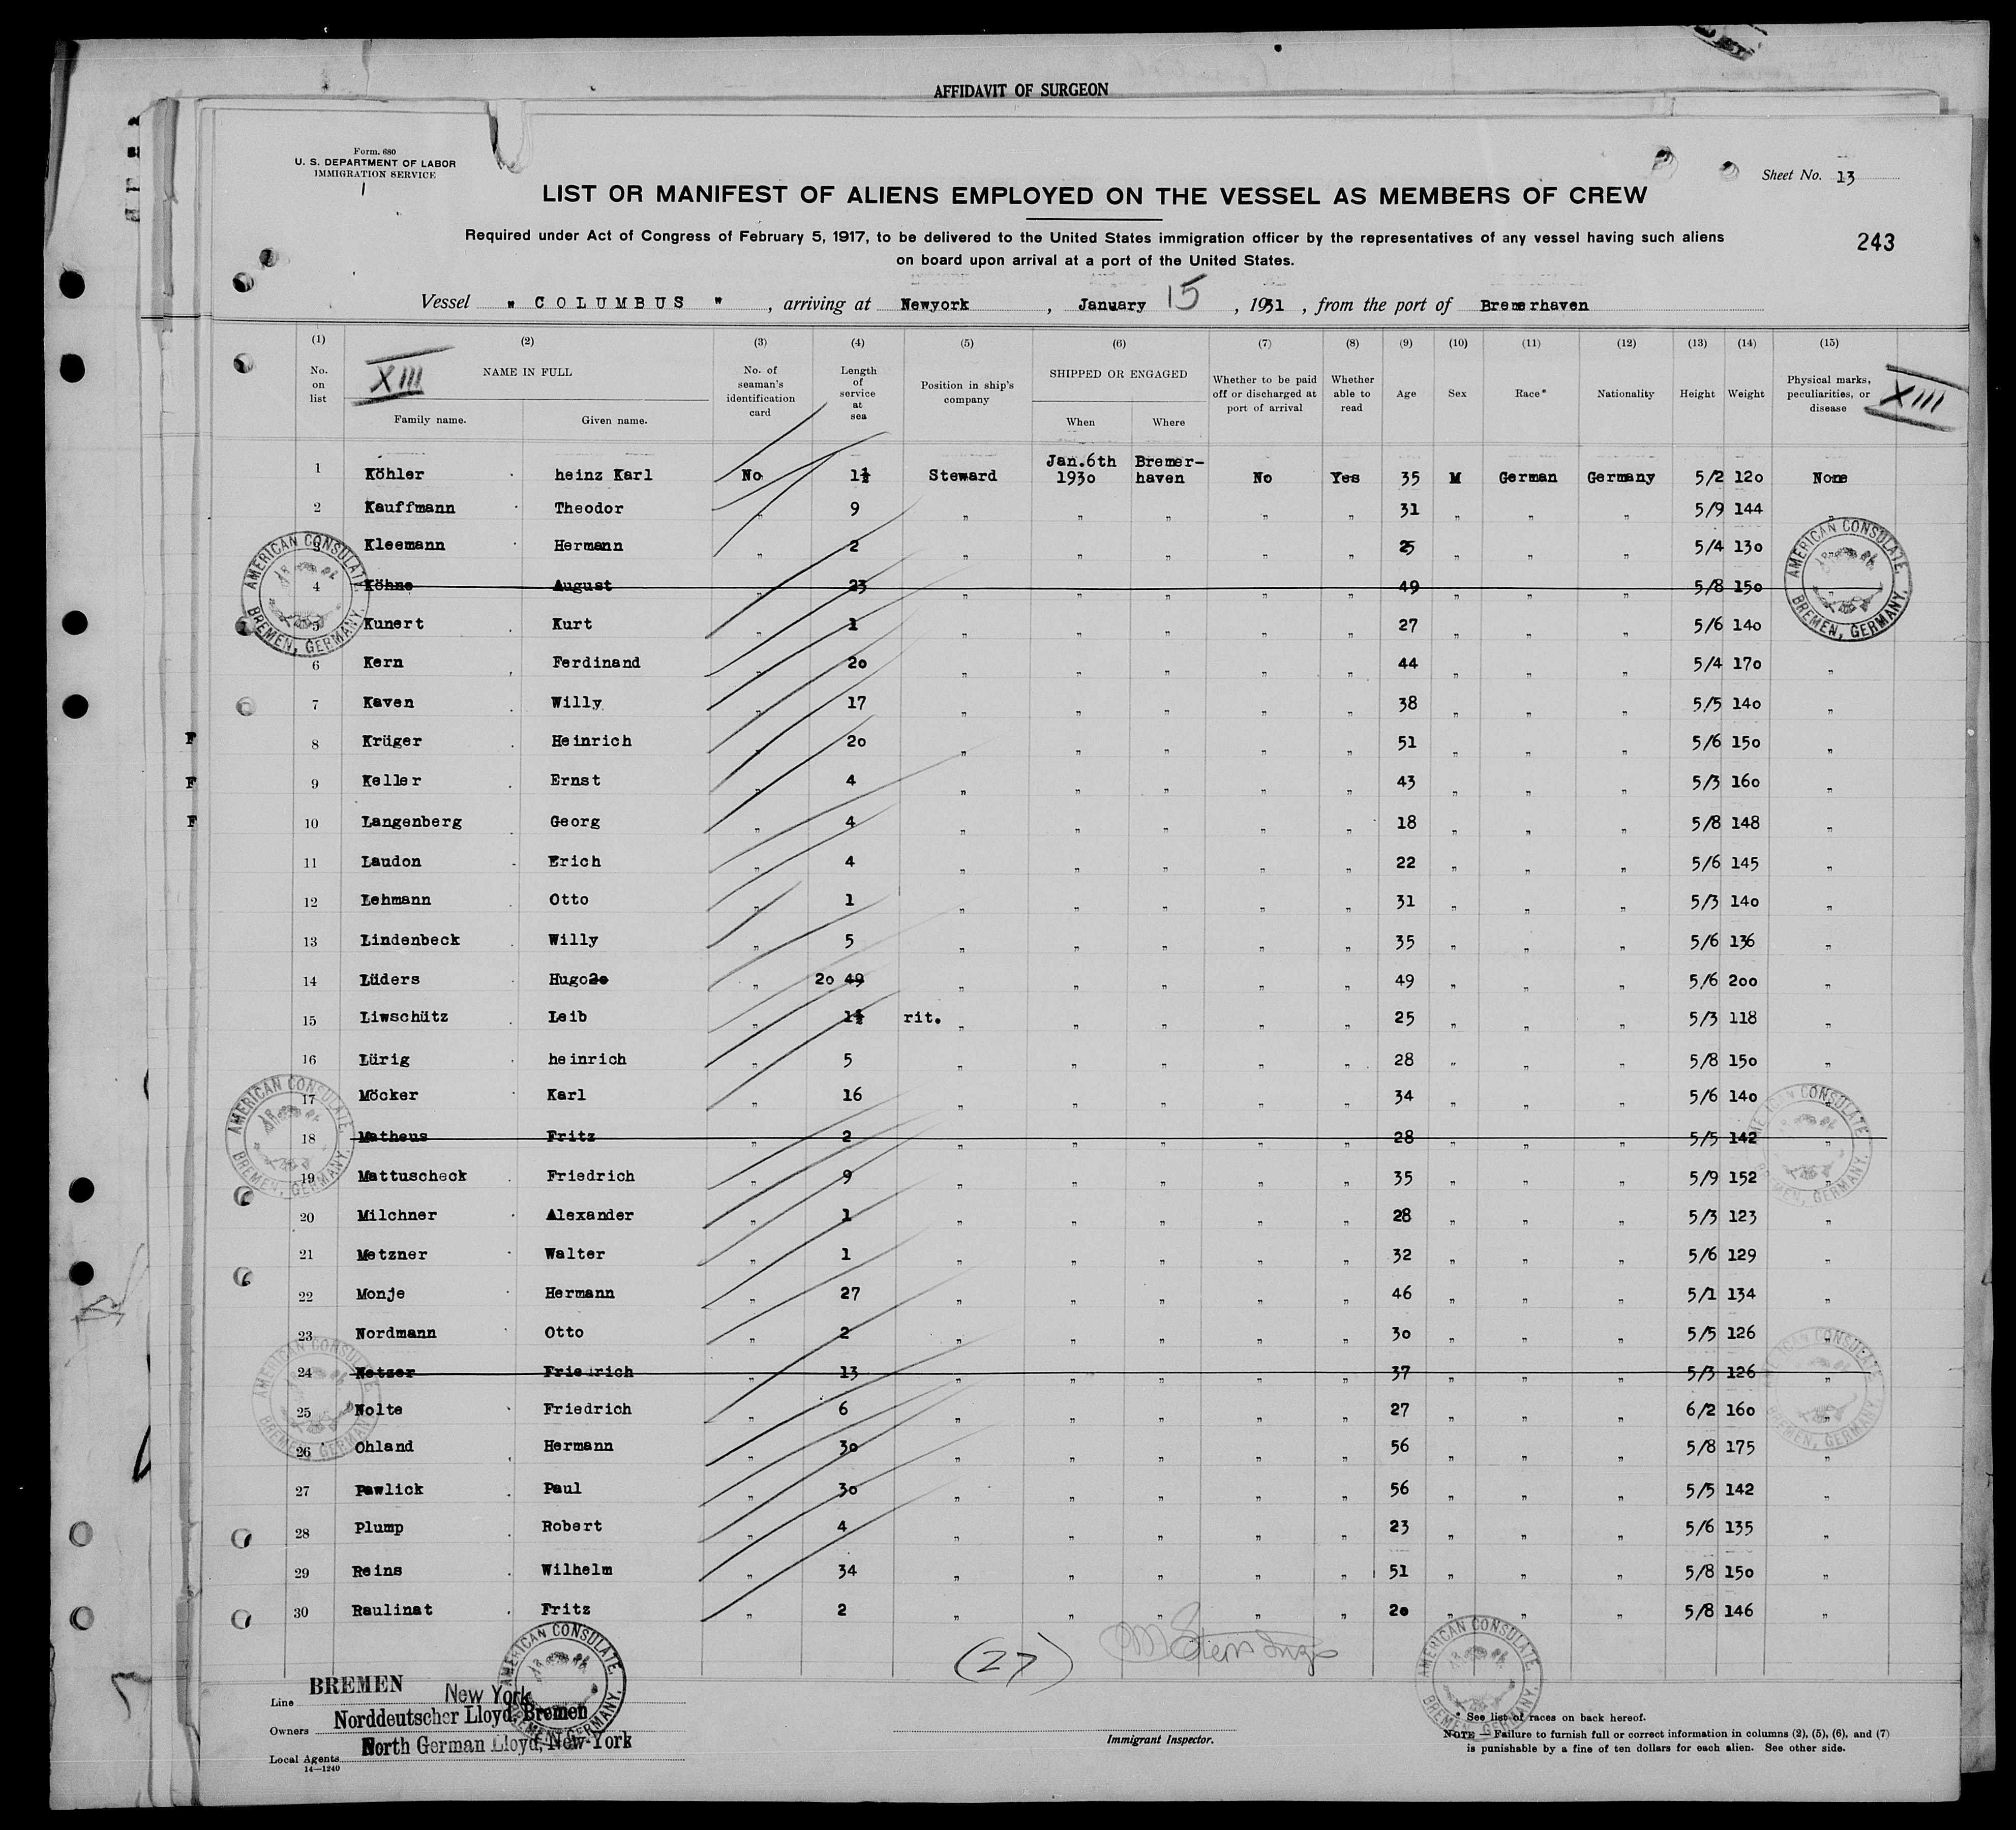 AFFIDAVIT OF SURGEON
Form. 680
U. S. DEPARTMENT OF LABOR
IMMIGRATION SERVICE
1
Sheet No. 13
LIST OR MANIFEST OF ALIENS EMPLOYED ON THE VESSEL AS MEMBERS OF CREW
Required under Act of Congress of February 5, 1917, to be delivered to the United States immigration officer by the representatives of any vessel having such aliens
on board upon arrival at a port of the United States.
243
Vessel " COLUMBUS " , arriving at Newyork , January 15 , 1931 , from the port of Bremerhaven
(1) (2) (3) (4) (5) (6) (7) (8) (9) (10) (11) (12) (13) (14) (15)
No. on list
XIII
NAME IN FULL
Family name. Given name.
No. of seaman's identification card
Length of service at sea
Position in ship's company
SHIPPED OR ENGAGED
When Where
Whether to be paid off or discharged at port of arrival
Whether able to read
Age
Sex
Race*
Nationality
Height
Weight
Physical marks, peculiarities, or disease
XIII
1 Köhler heinz Karl No 1½ Steward Jan.6th 1930 Bremer-haven No Yes 35 M German Germany 5/2 120 None
2 Kauffmann Theodor „ 9 „ „ „ „ „ 31 „ „ „ 5/9 144 „
3 Kleemann Hermann „ 2 „ „ „ „ „ 25 „ „ „ 5/4 130 „
4 Köhne August „ 23 „ „ „ „ „ 49 „ „ „ 5/8 150 „
5 Kunert Kurt „ 1 „ „ „ „ „ 27 „ „ „ 5/6 140 „
6 Kern Ferdinand „ 20 „ „ „ „ „ 44 „ „ „ 5/4 170 „
7 Kaven Willy „ 17 „ „ „ „ „ 38 „ „ „ 5/5 140 „
F 8 Krüger Heinrich „ 20 „ „ „ „ „ 51 „ „ „ 5/6 150 „
F 9 Keller Ernst „ 4 „ „ „ „ „ 43 „ „ „ 5/3 160 „
F 10 Langenberg Georg „ 4 „ „ „ „ „ 18 „ „ „ 5/8 148 „
11 Laudon Erich „ 4 „ „ „ „ „ 22 „ „ „ 5/6 145 „
12 Lehmann Otto „ 1 „ „ „ „ „ 31 „ „ „ 5/3 140 „
13 Lindenbeck Willy „ 5 „ „ „ „ „ 35 „ „ „ 5/6 136 „
14 Lüders Hugo20 „ 20 49 „ „ „ „ „ 49 „ „ „ 5/6 200 „
15 Liwschütz Leib „ 1½ rit. „ „ „ „ „ 25 „ „ „ 5/3 118 „
16 Lürig heinrich „ 5 „ „ „ „ „ 28 „ „ „ 5/8 150 „
17 Möcker Karl „ 16 „ „ „ „ „ 34 „ „ „ 5/6 140 „
18 Matheus Fritz „ 2 „ „ „ „ „ 28 „ „ „ 5/5 142 „
19 Mattuscheck Friedrich „ 9 „ „ „ „ „ 35 „ „ „ 5/9 152 „
20 Milchner Alexander „ 1 „ „ „ „ „ 28 „ „ „ 5/3 123 „
21 Metzner Walter „ 1 „ „ „ „ „ 32 „ „ „ 5/6 129 „
22 Monje Hermann „ 27 „ „ „ „ „ 46 „ „ „ 5/1 134 „
23 Nordmann Otto „ 2 „ „ „ „ „ 30 „ „ „ 5/5 126 „
24 Netzer Friedrich „ 13 „ „ „ „ „ 37 „ „ „ 5/3 126 „
25 Nolte Friedrich „ 6 „ „ „ „ „ 27 „ „ „ 6/2 160 „
26 Ohland Hermann „ 30 „ „ „ „ „ 56 „ „ „ 5/8 175 „
27 Pawlick Paul „ 30 „ „ „ „ „ 56 „ „ „ 5/5 142 „
28 Plump Robert „ 4 „ „ „ „ „ 23 „ „ „ 5/6 135 „
29 Reins Wilhelm „ 34 „ „ „ „ „ 51 „ „ „ 5/8 150 „
30 Raulinat Fritz „ 2 „ „ „ „ „ 20 „ „ „ 5/8 146 „
AMERICAN CONSULATE, BREMEN, GERMANY.
AMERICAN CONSULATE, BREMEN, GERMANY.
AMERICAN CONSULATE, BREMEN, GERMANY.
AMERICAN CONSULATE, BREMEN, GERMANY.
AMERICAN CONSULATE, BREMEN, GERMANY.
AMERICAN CONSULATE, BREMEN, GERMANY.
AMERICAN CONSULATE, BREMEN, GERMANY.
AMERICAN CONSULATE, BREMEN, GERMANY.
(27)
Line BREMEN New York
Owners Norddeutscher Lloyd, Bremen
Local Agents North German Lloyd, New-York
14—1240
Immigrant Inspector.
* See list of races on back hereof.
NOTE.—Failure to furnish full or correct information in columns (2), (5), (6), and (7)
is punishable by a fine of ten dollars for each alien. See other side.